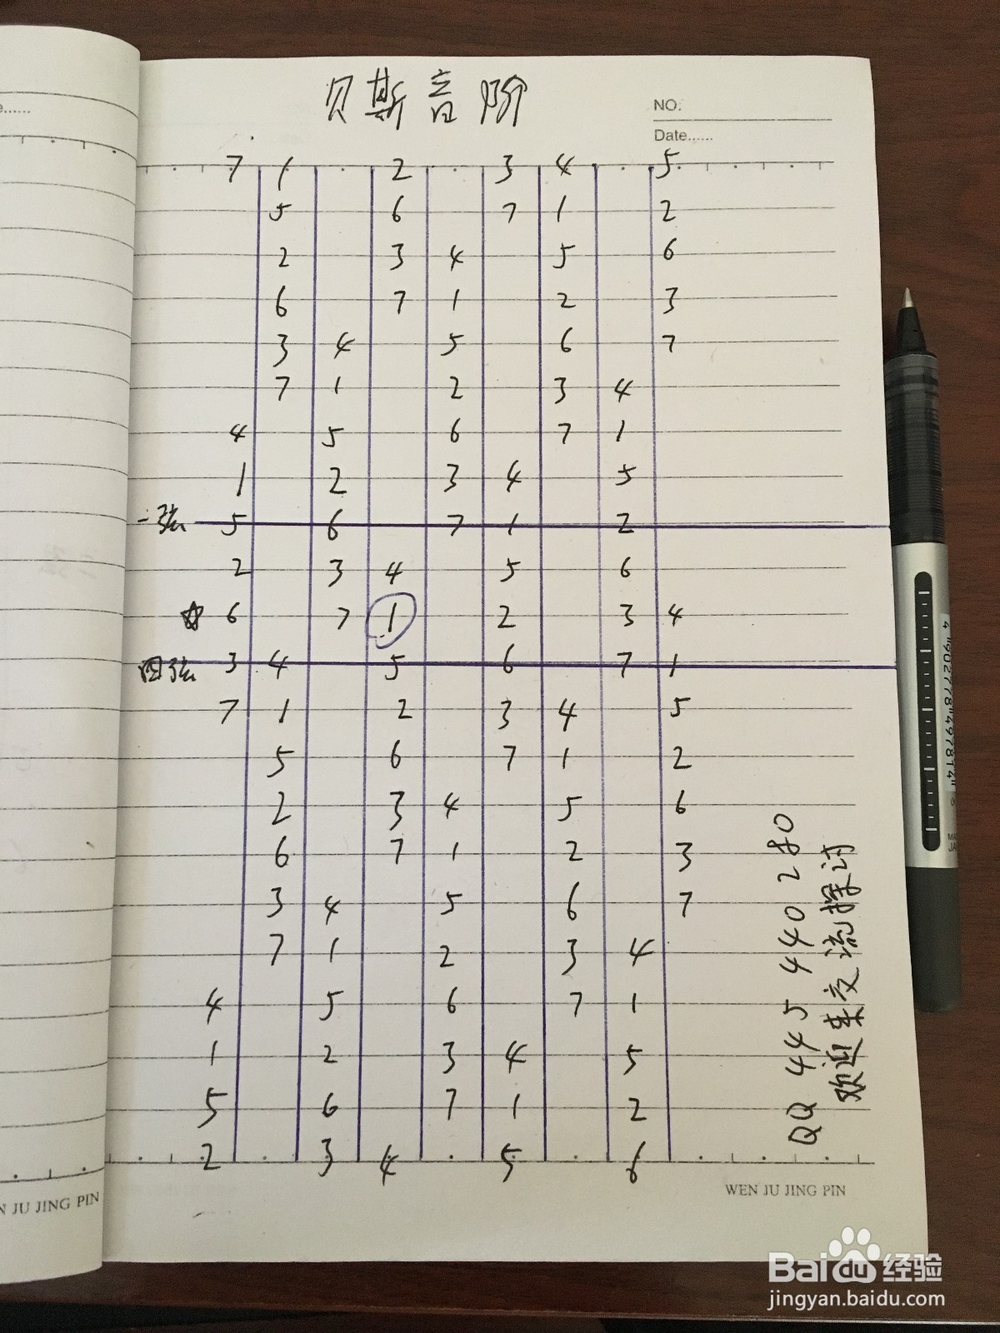 e......
贝斯音阶
NO.
Date......
7 1 2 3 4 5
5 6 7 1 2
2 3 4 5 6
6 7 1 2 3
3 4 5 6 7
7 1 2 3 4
4 5 6 7 1
1 2 3 4 5
一弦 5 6 7 1 2
2 3 4 5 6
☆ 6 7 1 2 3 4
四弦 3 4 5 6 7 1
7 1 2 3 4 5
5 6 7 1 2
2 3 4 5 6
6 7 1 2 3
3 4 5 6 7
7 1 2 3 4
4 5 6 7 1
1 2 3 4 5
5 6 7 1 2
2 3 4 5 6
QQ 445 440 280
欢迎来交流探讨
N JU JING PIN
WEN JU JING PIN
4"902778"497814"
Baidu 经验
jingyan.baidu.com